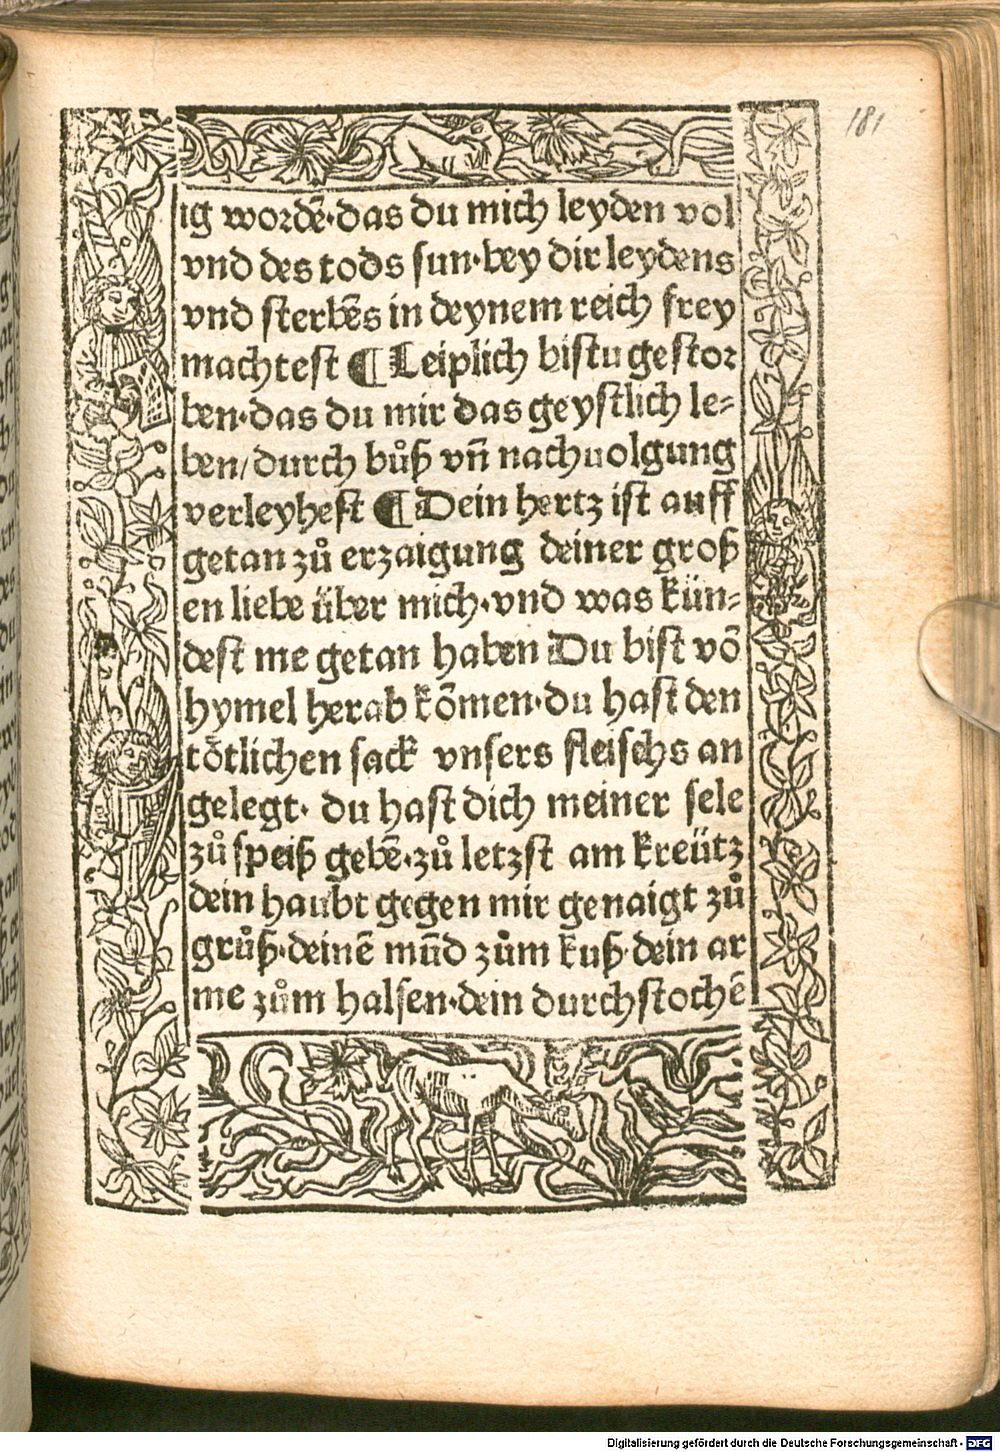 181
ig wordē·das du mich leyden vol
vnd des tods sun·bey dir leydens
vnd sterbēs in deynem reich frey
machtest ¶ Leiplich bistu gestor
ben·das du mir das geystlich le⸗
ben/durch bůß vn̄ nachuolgung
verleyhest ¶ Dein hertz ist auff
getan zů erzaigung deiner groß
en liebe über mich·vnd was kün⸗
dest me getan haben Du bist vō
hymel herab kōmen·du hast den
tötlichen sack vnsers fleischs an
gelegt· du hast dich meiner sele
zů speiß gebē·zů letzst am kreütz
dein haubt gegen mir genaigt zů
grůß·deinē mūd zům kuß·dein ar
me zům halsen·dein durchstochē
Digitalisierung gefördert durch die Deutsche Forschungsgemeinschaft - DFG